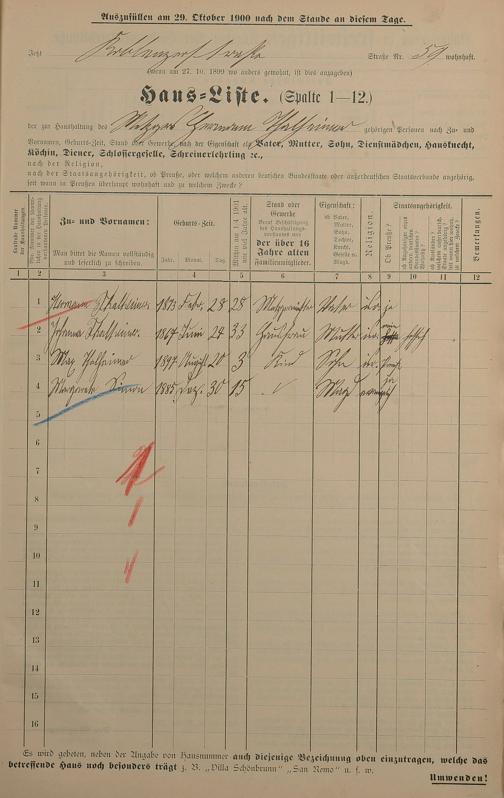 Auszufüllen am 29. Oktober 1900 nach dem Stande an diesem Tage.
Jetzt Koblenzerstraße Straße Nr. 59 wohnhaft.
(Wenn am 27. 10. 1899 wo anders gewohnt, ist dies anzugeben)
Haus-Liste. (Spalte 1—12.)
der zur Haushaltung des Metzger Hermann Thalheimer gehörigen Personen nach Zu- und
Vornamen, Geburts-Zeit, Stand oder Gewerbe, nach der Eigenschaft als Vater, Mutter, Sohn, Dienstmädchen, Hausknecht,
Köchin, Diener, Schlossergeselle, Schreinerlehrling ꝛc.,
nach der Religion,
nach der Staatsangehörigkeit, ob Preuße, oder welchem anderen deutschen Bundesstaate oder außerdeutschen Staatsverbande angehörig,
seit wann in Preußen überhaupt wohnhaft und zu welchem Zwecke?
Zu- und Vornamen:
Man bittet die Namen vollständig
und leserlich zu schreiben.
Geburts-Zeit.
Jahr. Monat. Tag.
Mithin am 1.1.1901
wie viel Jahre alt.
Stand oder
Gewerbe
der über 16
Jahre alten
Familienmitglieder.
Eigenschaft:
ob Vater,
Mutter,
Sohn,
Tochter,
Knecht,
Geselle u.
Magd.
Religion.
Staatsangehörigkeit.
Ob Preuße?
Bemerkungen.
1 2 3 4 5 6 7 8 9 10 11 12
1 Hermann Thalheimer 1873 Febr. 28 28 Metzgermeister Vater isr. ja
2 Johanna Thalheimer 1867 Juni 24 33 Hausfrau Mutter isr.
3 Max Thalheimer 1897 August 20 3 Kind Sohn isr.
4 Simon 1885 Dez. 30 15 Magd ja
5
6
7
8
9
10
11
12
13
14
15
16
Es wird gebeten, neben der Angabe von Hausnummer auch diejenige Bezeichnung oben einzutragen, welche das
betreffende Haus noch besonders trägt z. B. „Villa Schönbrunn" „San Remo" u. s. w.
Umwenden!